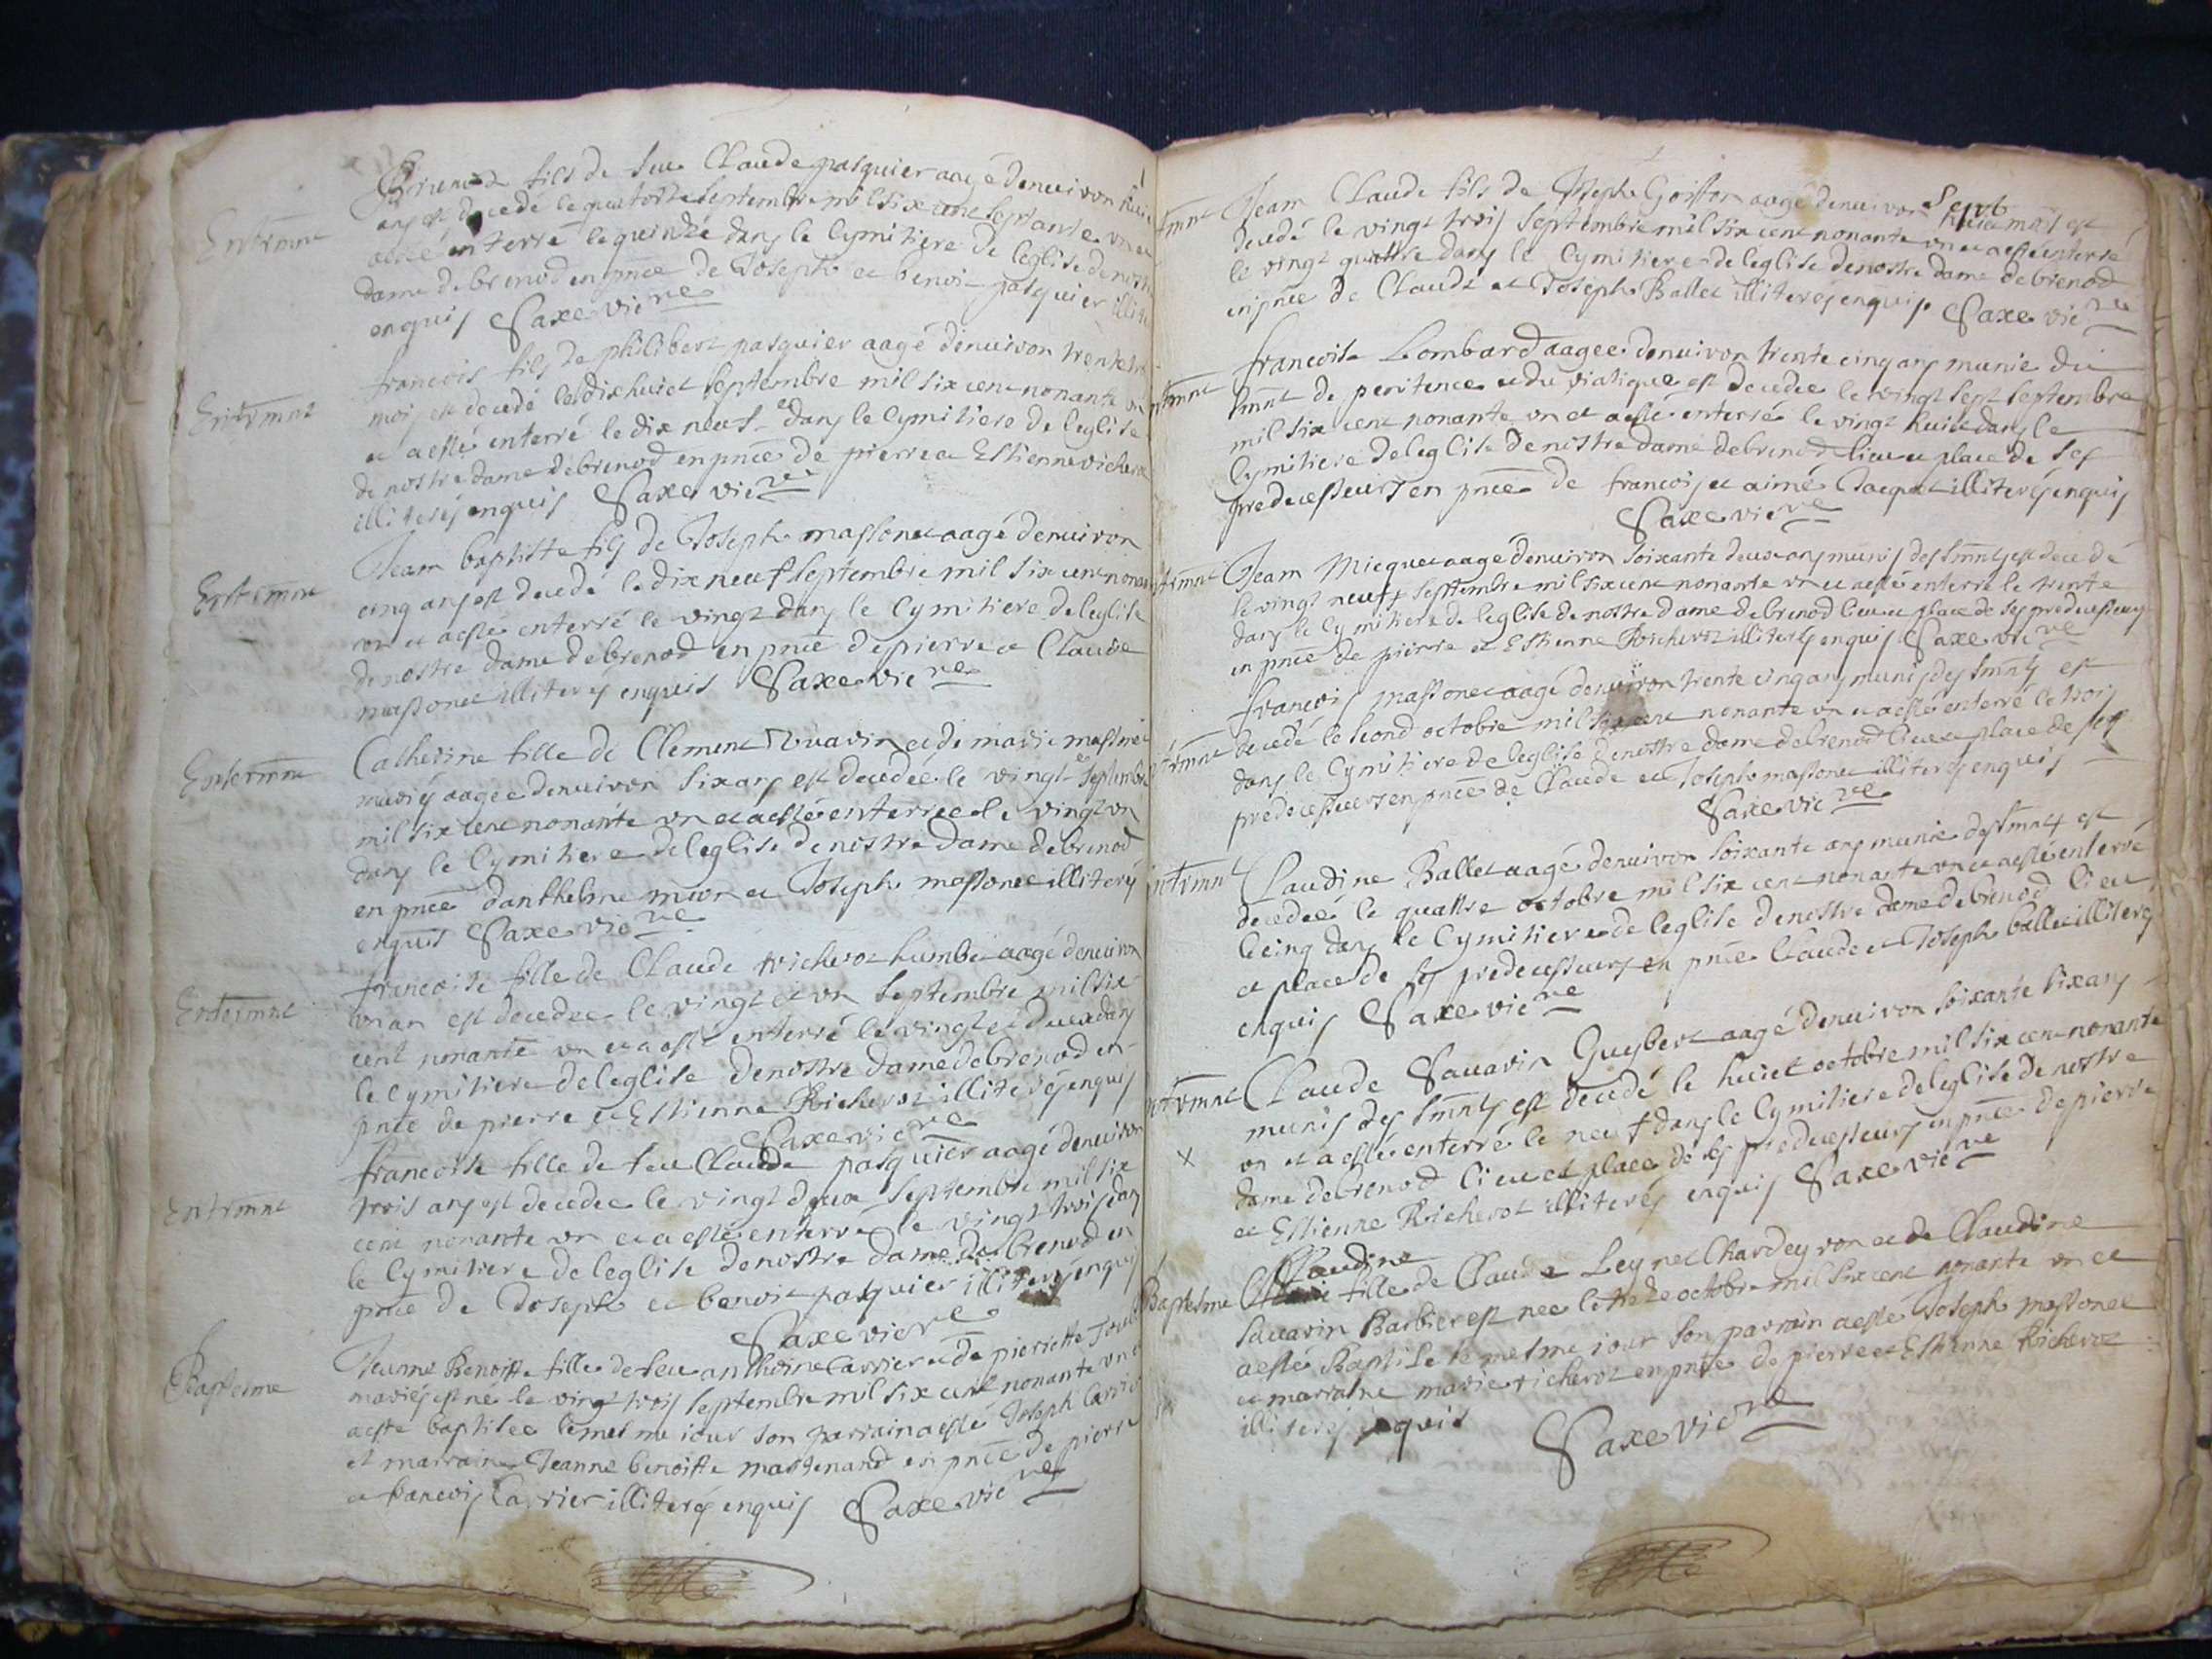 Entermnt
fils de feu Claude pasquier aagé denuiron huict
ans est decedé le quatorze Septembre mil six cent septante un et
aesté enterré le quinzé dans le Cymitiere de leglise de nostre
dame debrenod en pnce de Joseph et benoit pasquier illite
enquis Saxe vicre
Entermnt
francois fils de philibert pasquier aagé denuiron trente
mois est decedé le dix huict septembre mil six cent nonante un
et aesté enterré le dix neuf dans le Cymitiere de leglise
de nostre dame debrenod en pnce de pierre et Estienne richerot
illiterés enquis Saxe vicre
Entermnt
Jean baptiste fils de Joseph massonet aagé denuiron
cinq ans est decedé le dix neuf septembre mil six cent nonan
un et aesté enterré le vingt dans le Cymitiere de leglise
de nostre dame debrenod en pnce de pierre et Claude
massonet illiterés enquis Saxe vicre
Entermnt
Catherine fille de Clement Vuarin et de marie massonet
mariés aagee denuiron six ans est decedée le vingt septembre
mil six cent nonante un et aesté enterree le vingt un
dans le Cymitiere de leglise de nostre dame debrenod
en pnce danthelme et Joseph massonet illiterés
enquis Saxe vicre
Entermnt
francoise fille de Claude richerot humbert aagé denuiron
un an est decedee le vingt et un Septembre mil six
cent nonante un et a esté enterré le vingt et deux dans
le Cymitiere de leglise de nostre dame debrenod en
pnce de pierre et Estienne Richerot illiterés enquis
Saxe vicre
Entermnt
francoise fille de feu Claude pasquier aagé denuiron
trois ans est decedee le vingt deux Septembre mil six
cent nonante un et a esté enterré le vingt trois dans
le Cymitiere de leglise de nostre dame de brenod en
pnce de Joseph et benoit pasquier illiterés enquis
Saxe vicre
Baptesme
Jeanne Benoitte fille de feu anthoine Carrier et de pierrette
mariés est ne le vingt trois septembre mil six cent nonante un
aesté baptisee le mesme iour son parrain a esté Joseph Carrier
et marraine Jeanne benoitte mastenand en pnce de pierre
et francois Carrier illiterés enquis Saxe vicre
Jean Claude fils de Joseph Goiffon aagé denuiron Sept mois est
decedé le vingt trois Septembre mil six cent nonante un et aesté enterré
le vingt quattre dans le Cymitiere de leglise de nostre dame debrenod
en pnce de Claude et Joseph Ballet illiterés enquis Saxe vicre
francoise Lombard aagee denuiron trente cinq ans munie du
smnt de penitence et du viatique est decedee le vingt sept septembre
mil six cent nonante un et aesté enterré le vingt huict dans le
Cymitiere de leglise de nostre dame debrenod lieu et place de ses
predecesseurs en pnce de francois et aimé Jacquet illiterés enquis
Saxe vicre
Jean Micquet aagé denuiron soixante deux ans munis des smnts est decedé
le vingt neuf septembre mil six cent nonante un et aesté enterré le trente
dans le Cymitiere de leglise de nostre dame debrenod lieu et place de ses predecesseurs
en pnce de pierre et Estienne Richerot illiterés enquis Saxe vicre
francois massonet aagé denuiron trente cinq ans munis des smnts est
decedé le second octobre mil six cent nonante un et aesté enterré le trois
dans le Cymitiere de leglise de nostre dame debrenod lieu et place de ses
predecesseurs en pnce de Claude et Joseph massonet illiterés enquis
Saxe vicre
Claudine Ballet aagé denuiron soixante ans munie des smnts est
decedeé le quattre octobre mil six cent nonante un et aesté enterré
le cinq dans le Cymitiere de leglise de nostre dame debrenod lieu
et place de ses predecesseurs en pnce Claude et Joseph ballet illiterés
enquis Saxe vicre
Claude Sauarin Guybert aagé denuiron soixante six ans
munis des smnts est decedé le huict octobre mil six cent nonante
un et a esté enterré le neuf dans le Cymitiere de leglise de nostre
dame debrenod lieu et place de ses predecesseurs en pnce de pierre
et Estienne Richerot illiterés enquis Saxe vicre
Baptesme Claudine
fille de Claude Leynet Chardeyron et de Claudine
Sauarin Barbier est nee le treze octobre mil six cent nonante un et
aesté Baptisé le mesme iour son parrain a esté Joseph massonet
et marraine marie richerot en pnce de pierre et Estienne Richerot
illiterés enquis
Saxe vicre